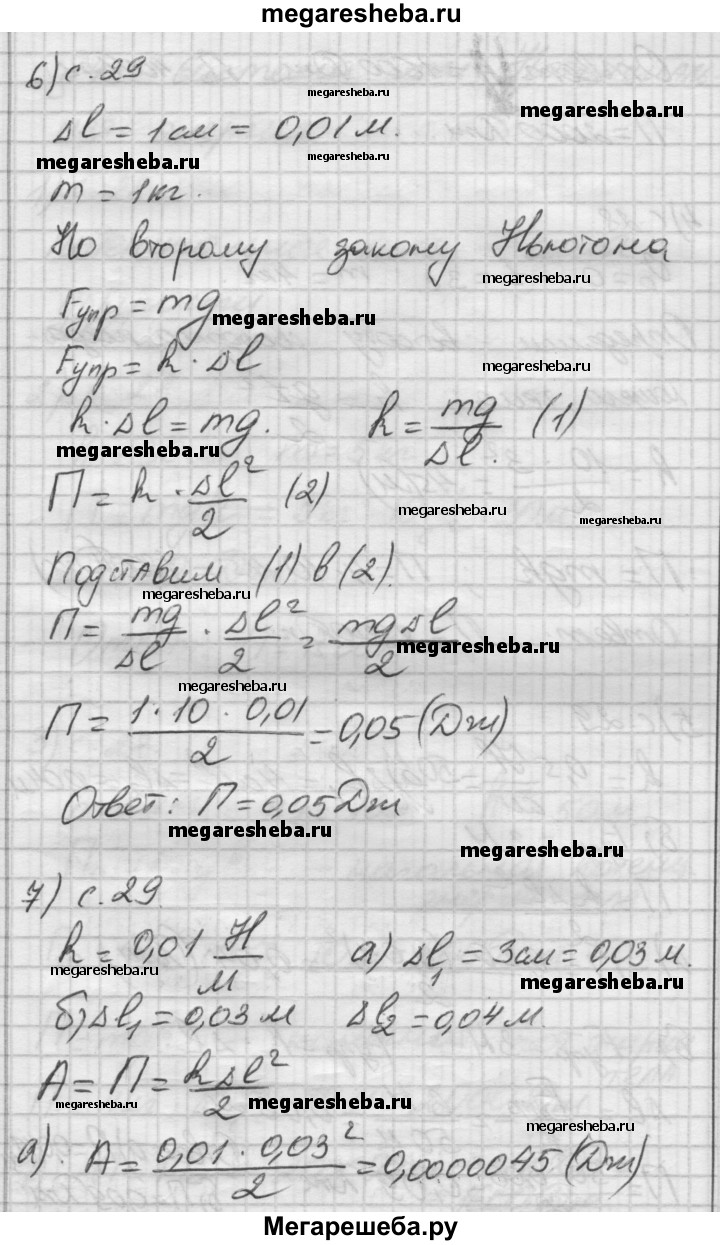 megaresheba.ru
6) с. 29
megaresheba.ru
megaresheba.ru
Δl = 1 см = 0,01 м.
megaresheba.ru
megaresheba.ru
m = 1 кг.
По второму закону Ньютона
megaresheba.ru
Fупр = mg
megaresheba.ru
Fупр = k · Δl
megaresheba.ru
k · Δl = mg. k = mg/Δl. (1)
megaresheba.ru
П = k · Δl²/2 (2)
megaresheba.ru
megaresheba.ru
Подставим (1) в (2).
megaresheba.ru
П = mg/Δl · Δl²/2 = mgΔl/2
megaresheba.ru
megaresheba.ru
П = 1·10·0,01/2 = 0,05 (Дж)
Ответ: П = 0,05 Дж
megaresheba.ru
megaresheba.ru
7) с. 29.
k = 0,01 Н/м а) Δl₁ = 3 см = 0,03 м.
megaresheba.ru
megaresheba.ru
б) Δl₁ = 0,03 м Δl₂ = 0,04 м.
A = П = kΔl²/2
megaresheba.ru
megaresheba.ru
megaresheba.ru
а). A = 0,01·0,03²/2 = 0,0000045 (Дж)
Мегарешеба.ру